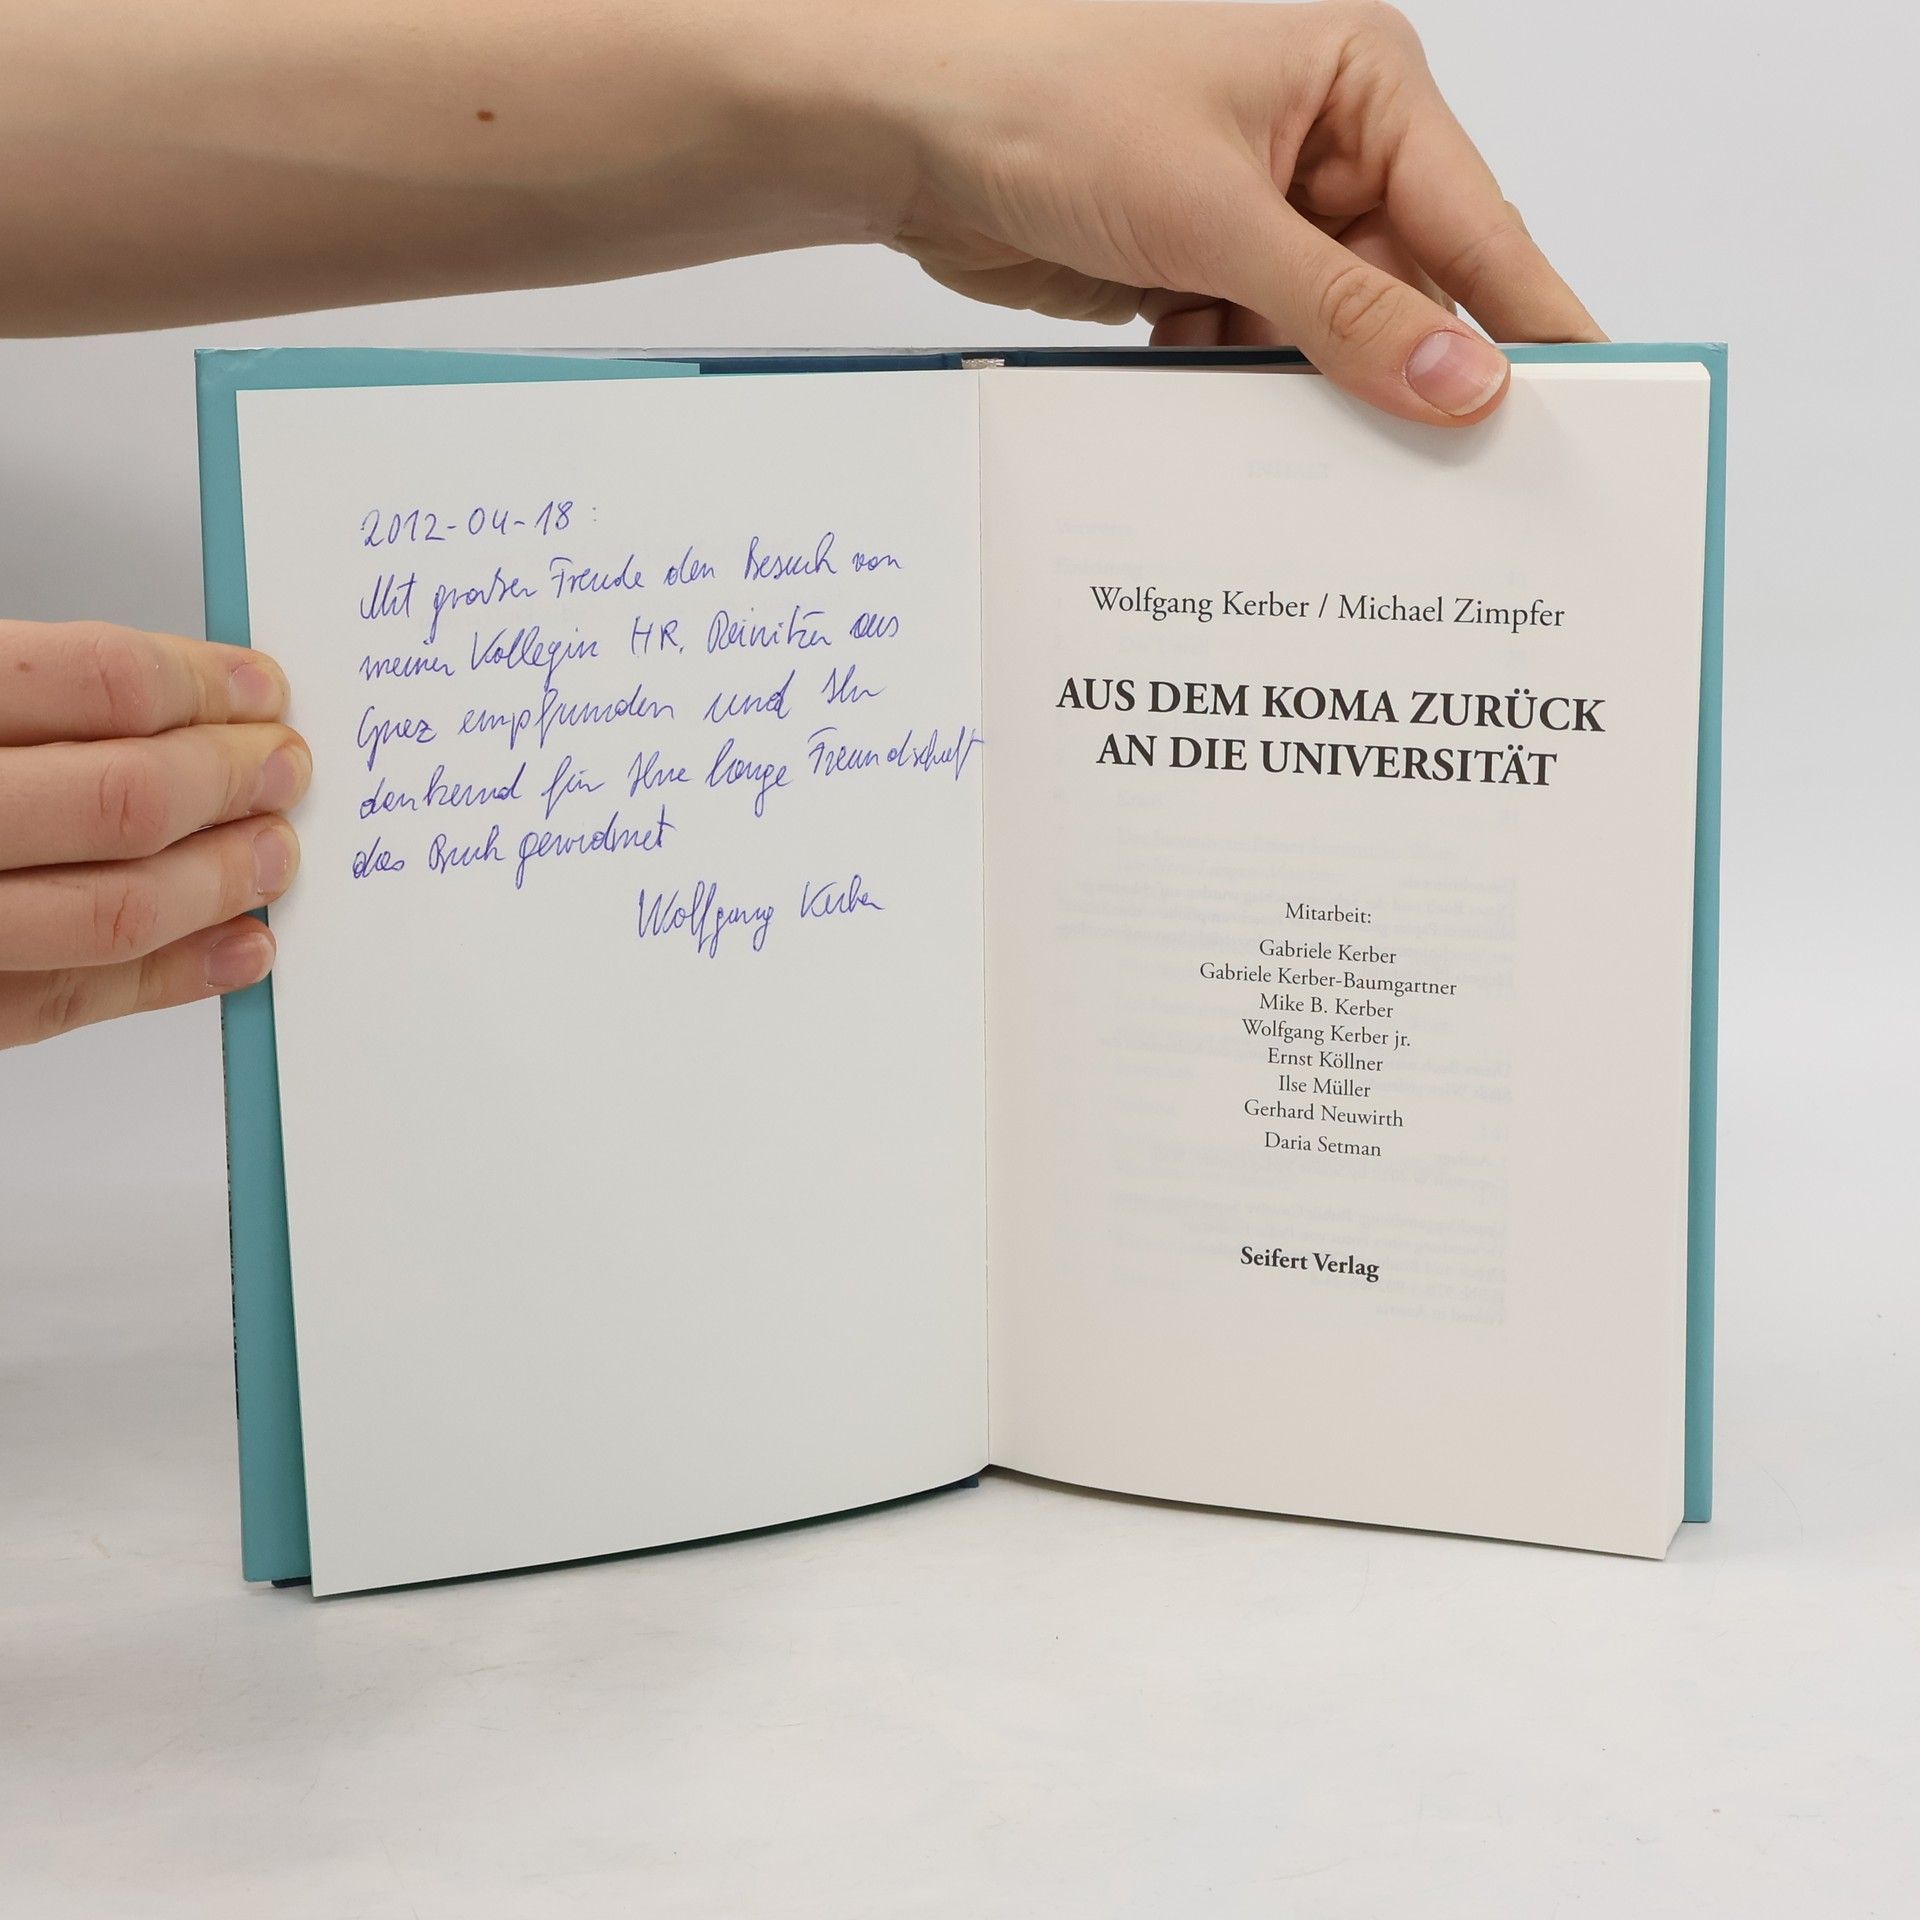 2012-04-18:
Mit großer Freude den Besuch von
meiner Kollegin HR. Reinitzer aus
Graz empfunden und Ihr
dankend für Ihre lange Freundschaft
das Buch gewidmet
Wolfgang Kerber
Wolfgang Kerber / Michael Zimpfer
AUS DEM KOMA ZURÜCK
AN DIE UNIVERSITÄT
Mitarbeit:
Gabriele Kerber
Gabriele Kerber-Baumgartner
Mike B. Kerber
Wolfgang Kerber jr.
Ernst Köllner
Ilse Müller
Gerhard Neuwirth
Daria Setman
Seifert Verlag